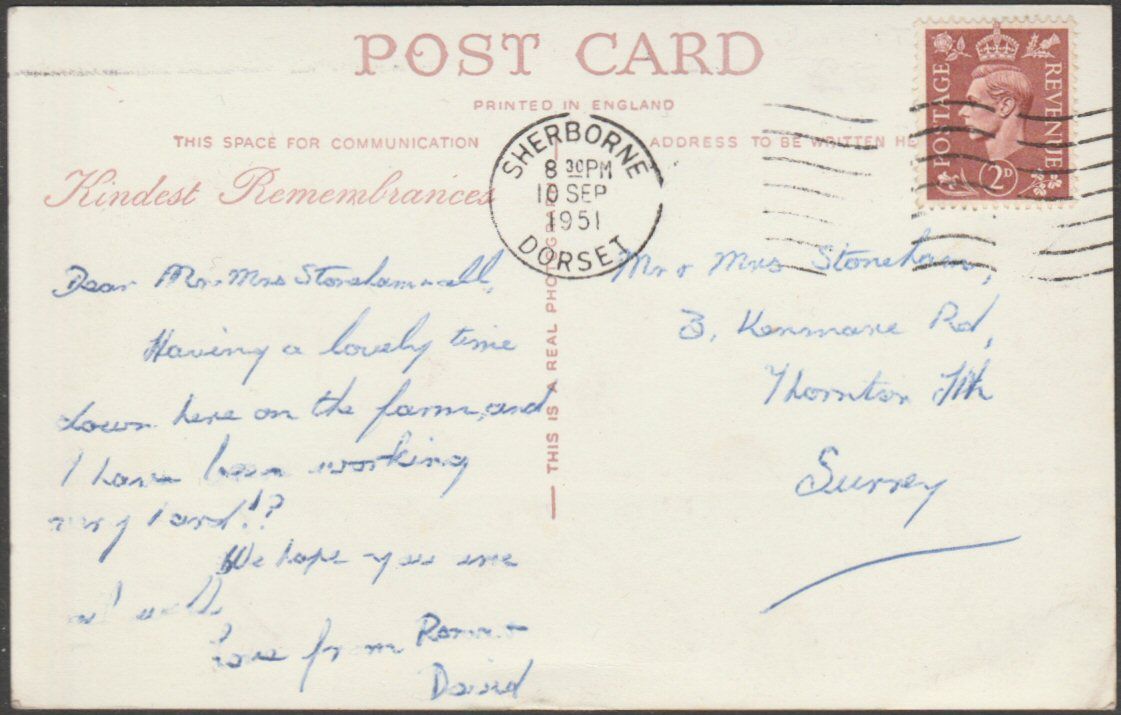 POST CARD
PRINTED IN ENGLAND
THIS SPACE FOR COMMUNICATION
ADDRESS TO BE WRITTEN HE
Kindest Remembrances
POSTAGE REVENUE
2D
SHERBORNE
8 30PM
10 SEP
1951
DORSET
THIS IS A REAL PHOTOGRAP
Dear Mr & Mrs Stoneham & all,
Having a lovely time
down here on the farm, and
I have been working
very hard!!?
We hope you are
all well.
Love from &
David
Mr & Mrs Stoneham,
3, Kenmare Rd,
Thornton Hth
Surrey